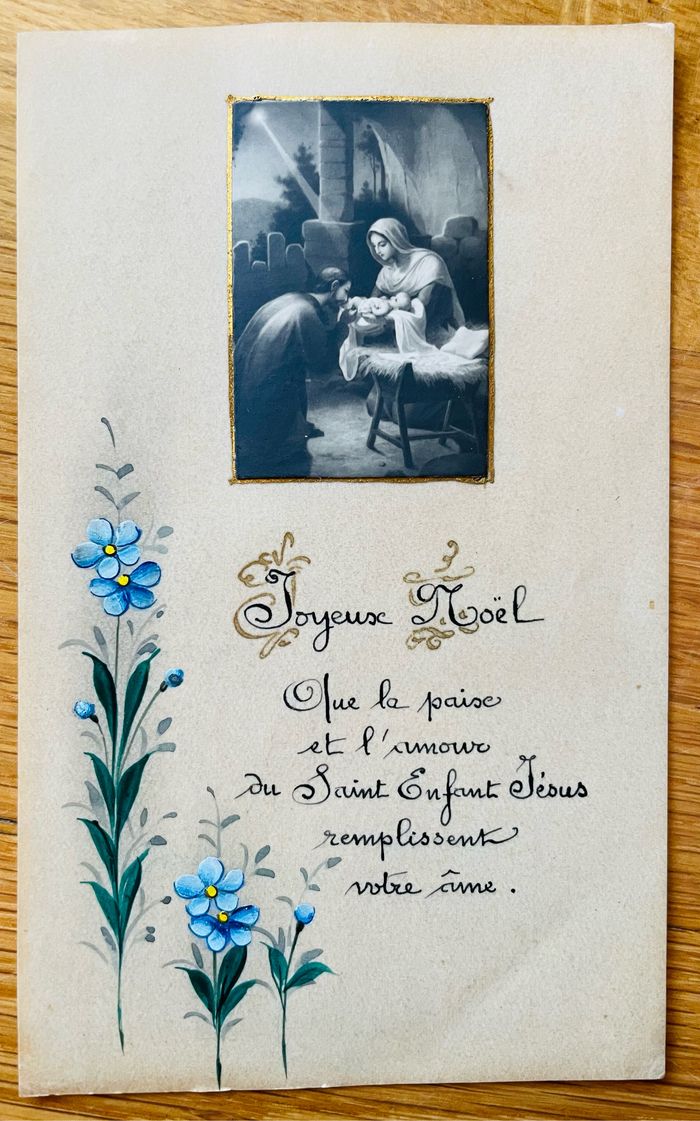 Joyeux Noël
Que la paix
et l'amour
du Saint Enfant Jésus
remplissent
votre âme.